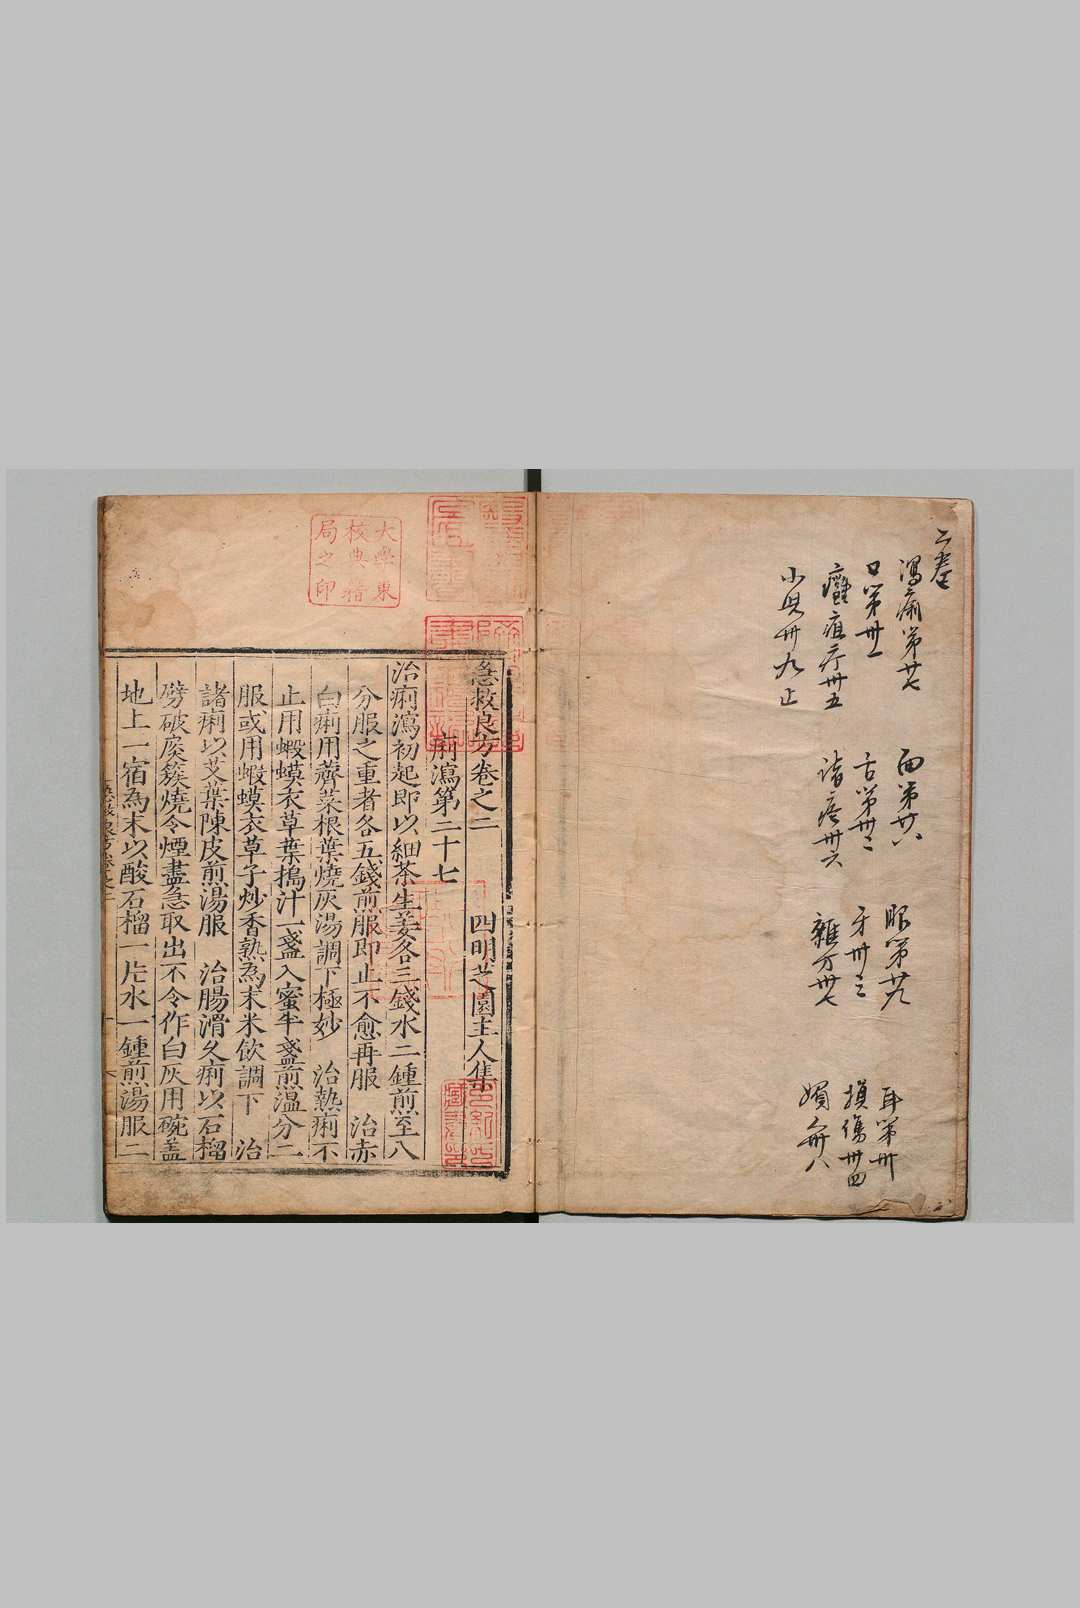 二卷
瀉痢第廿七
面第廿八
眼第廿九
耳第卅
口第卅一
舌第卅二
牙卅三
損傷卅四
癰疽疔卅五
諸瘡卅六
雜方卅七
婦人卅八
小児卅九止
急救良方卷之二
四明芝園主人集
痢瀉第二十七
治痢瀉初起即以細茶生姜各三錢水二鍾煎至八
分服之重者各五錢煎服即止不愈再服 治赤
白痢用薺菜根葉燒灰湯調下極妙 治熱痢不
止用蝦蟆衣草葉搗汁一盞入蜜半盞煎溫分二
服或用蝦蟆衣草子炒香熟為末米飲調下 治
諸痢以艾葉陳皮煎湯服 治腸滑久痢以石榴
劈破炭簇燒令煙盡急取出不令作白灰用碗盖
地上一宿為末以酸石榴一片水一鍾煎湯服二
大學東
校典籍
局之印